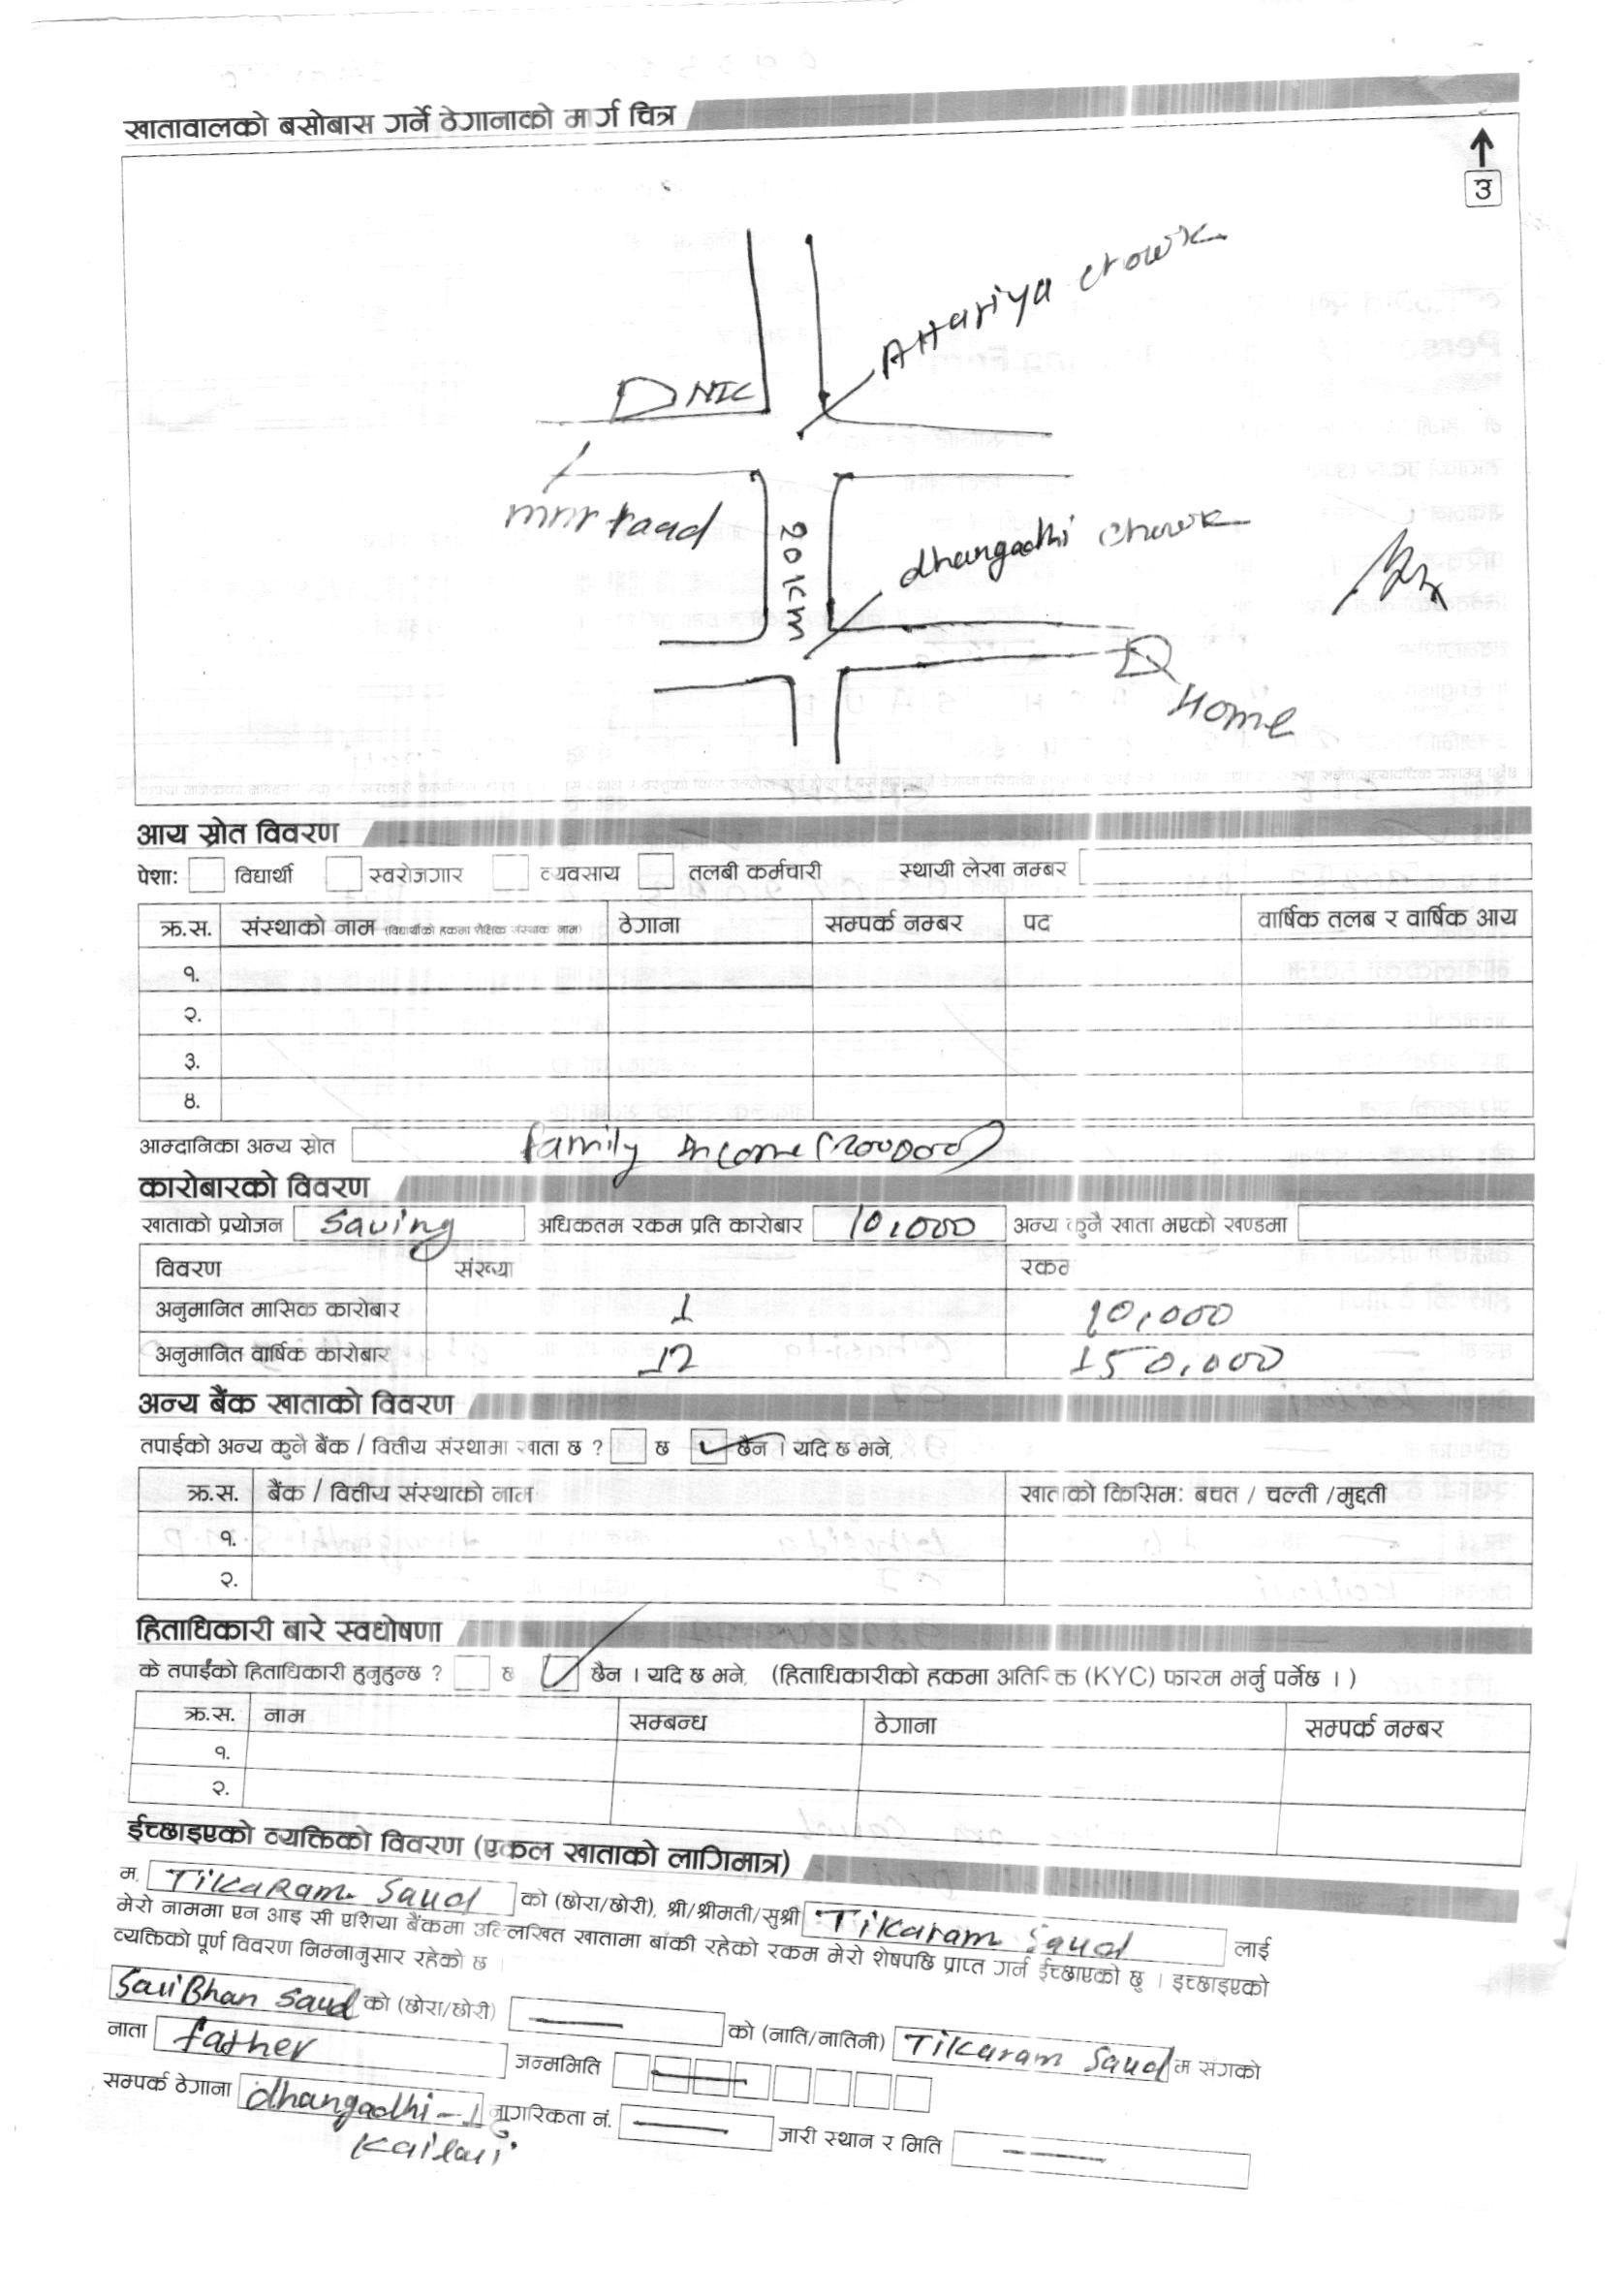 खातावालको बसोबास गर्ने ठेगानाको मार्ग चित्र
उ
Attariya chowk
NIC
mnr road
20 KM
dhangadhi chowk
Home
आय स्रोत विवरण
पेशा: विद्यार्थी स्वरोजगार व्यवसाय तलबी कर्मचारी स्थायी लेखा नम्बर
क्र.स. संस्थाको नाम (विद्यार्थीको हकमा शैक्षिक संस्थाक नाम) ठेगाना सम्पर्क नम्बर पद वार्षिक तलब र वार्षिक आय
१.
२.
३.
४.
आम्दानिका अन्य स्रोत family Income (200000)
कारोबारको विवरण
खाताको प्रयोजन Saving अधिकतम रकम प्रति कारोबार 10,000 अन्य कुनै खाता भएको खण्डमा
विवरण संख्या रकम
अनुमानित मासिक कारोबार 1 10,000
अनुमानित वार्षिक कारोबार 12 150,000
अन्य बैंक खाताको विवरण
तपाईको अन्य कुनै बैंक / वित्तीय संस्थामा खाता छ ? छ छैन । यदि छ भने,
क्र.स. बैंक / वित्तीय संस्थाको नाम खाताको किसिम: बचत / चल्ती /मुद्दती
१.
२.
हिताधिकारी बारे स्वघोषणा
के तपाईंको हिताधिकारी हुनुहुन्छ ? छ छैन । यदि छ भने, (हिताधिकारीको हकमा अतिरिक्त (KYC) फारम भर्नु पर्नेछ । )
क्र.स. नाम सम्बन्ध ठेगाना सम्पर्क नम्बर
१.
२.
ईच्छाइएको व्यक्तिको विवरण (एकल खाताको लागिमात्र)
म, Tikaram Saud को (छोरा/छोरी), श्री/श्रीमती/सुश्री Tikaram Saud लाई
मेरो नाममा एन आइ सी एशिया बैंकमा उल्लिखित खातामा बाँकी रहेको रकम मेरो शेषपछि प्राप्त गर्न ईच्छाएको छु । इच्छाइएको
व्यक्तिको पूर्ण विवरण निम्नानुसार रहेको छ ।
Bhan Saud को (छोरा/छोरी) को (नाति/नातिनी) Tikaram Saud म संगको
नाता father जन्ममिति
सम्पर्क ठेगाना dhangadhi - नागरिकता नं. जारी स्थान र मिति
Kailali